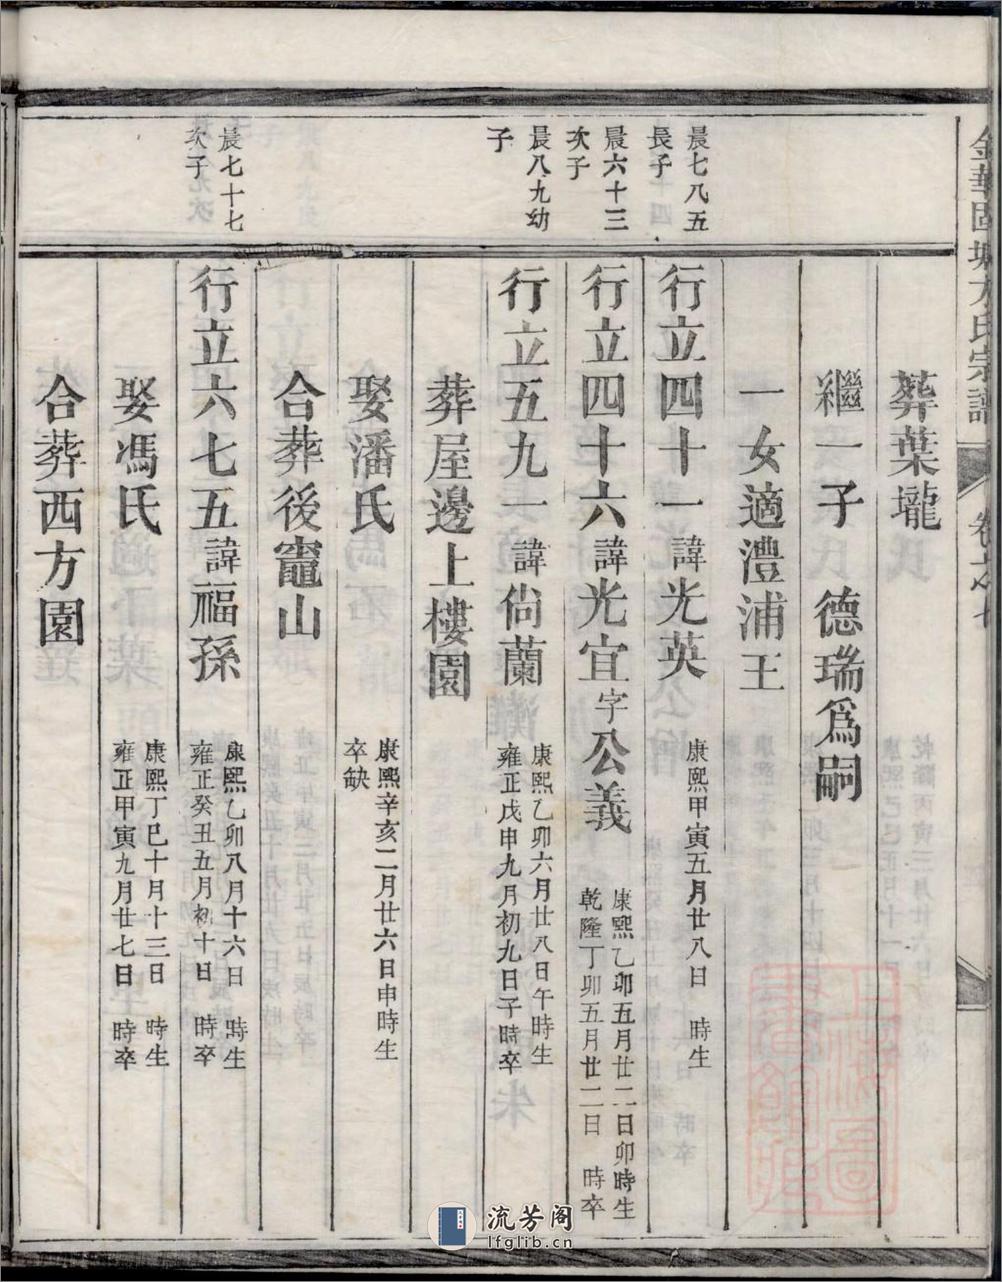 金華固塘方氏宗譜
葬葉壠
繼一子德瑞爲嗣
一女適澧浦王
晨七八五長子
行立四十一諱光英
康熙甲寅五月廿八日 時生
晨六十三次子
行立四十六諱光宜字公義
康熙乙卯五月廿二日卯時生
乾隆丁卯五月廿二日 時卒
晨八九幼子
行立五九一諱尚蘭
康熙乙卯六月廿八日午時生
雍正戊申九月初九日子時卒
葬屋邊上樓園
娶潘氏
康熙辛亥二月廿六日申時生
卒缺
合葬後竈山
晨七十七次子
行立六七五諱福孫
康熙乙卯八月十六日 時生
雍正癸丑五月初十日 時卒
娶馮氏
康熙丁巳十月十三日 時生
雍正甲寅九月廿七日 時卒
合葬西方園
流芳阁
lfglib.cn